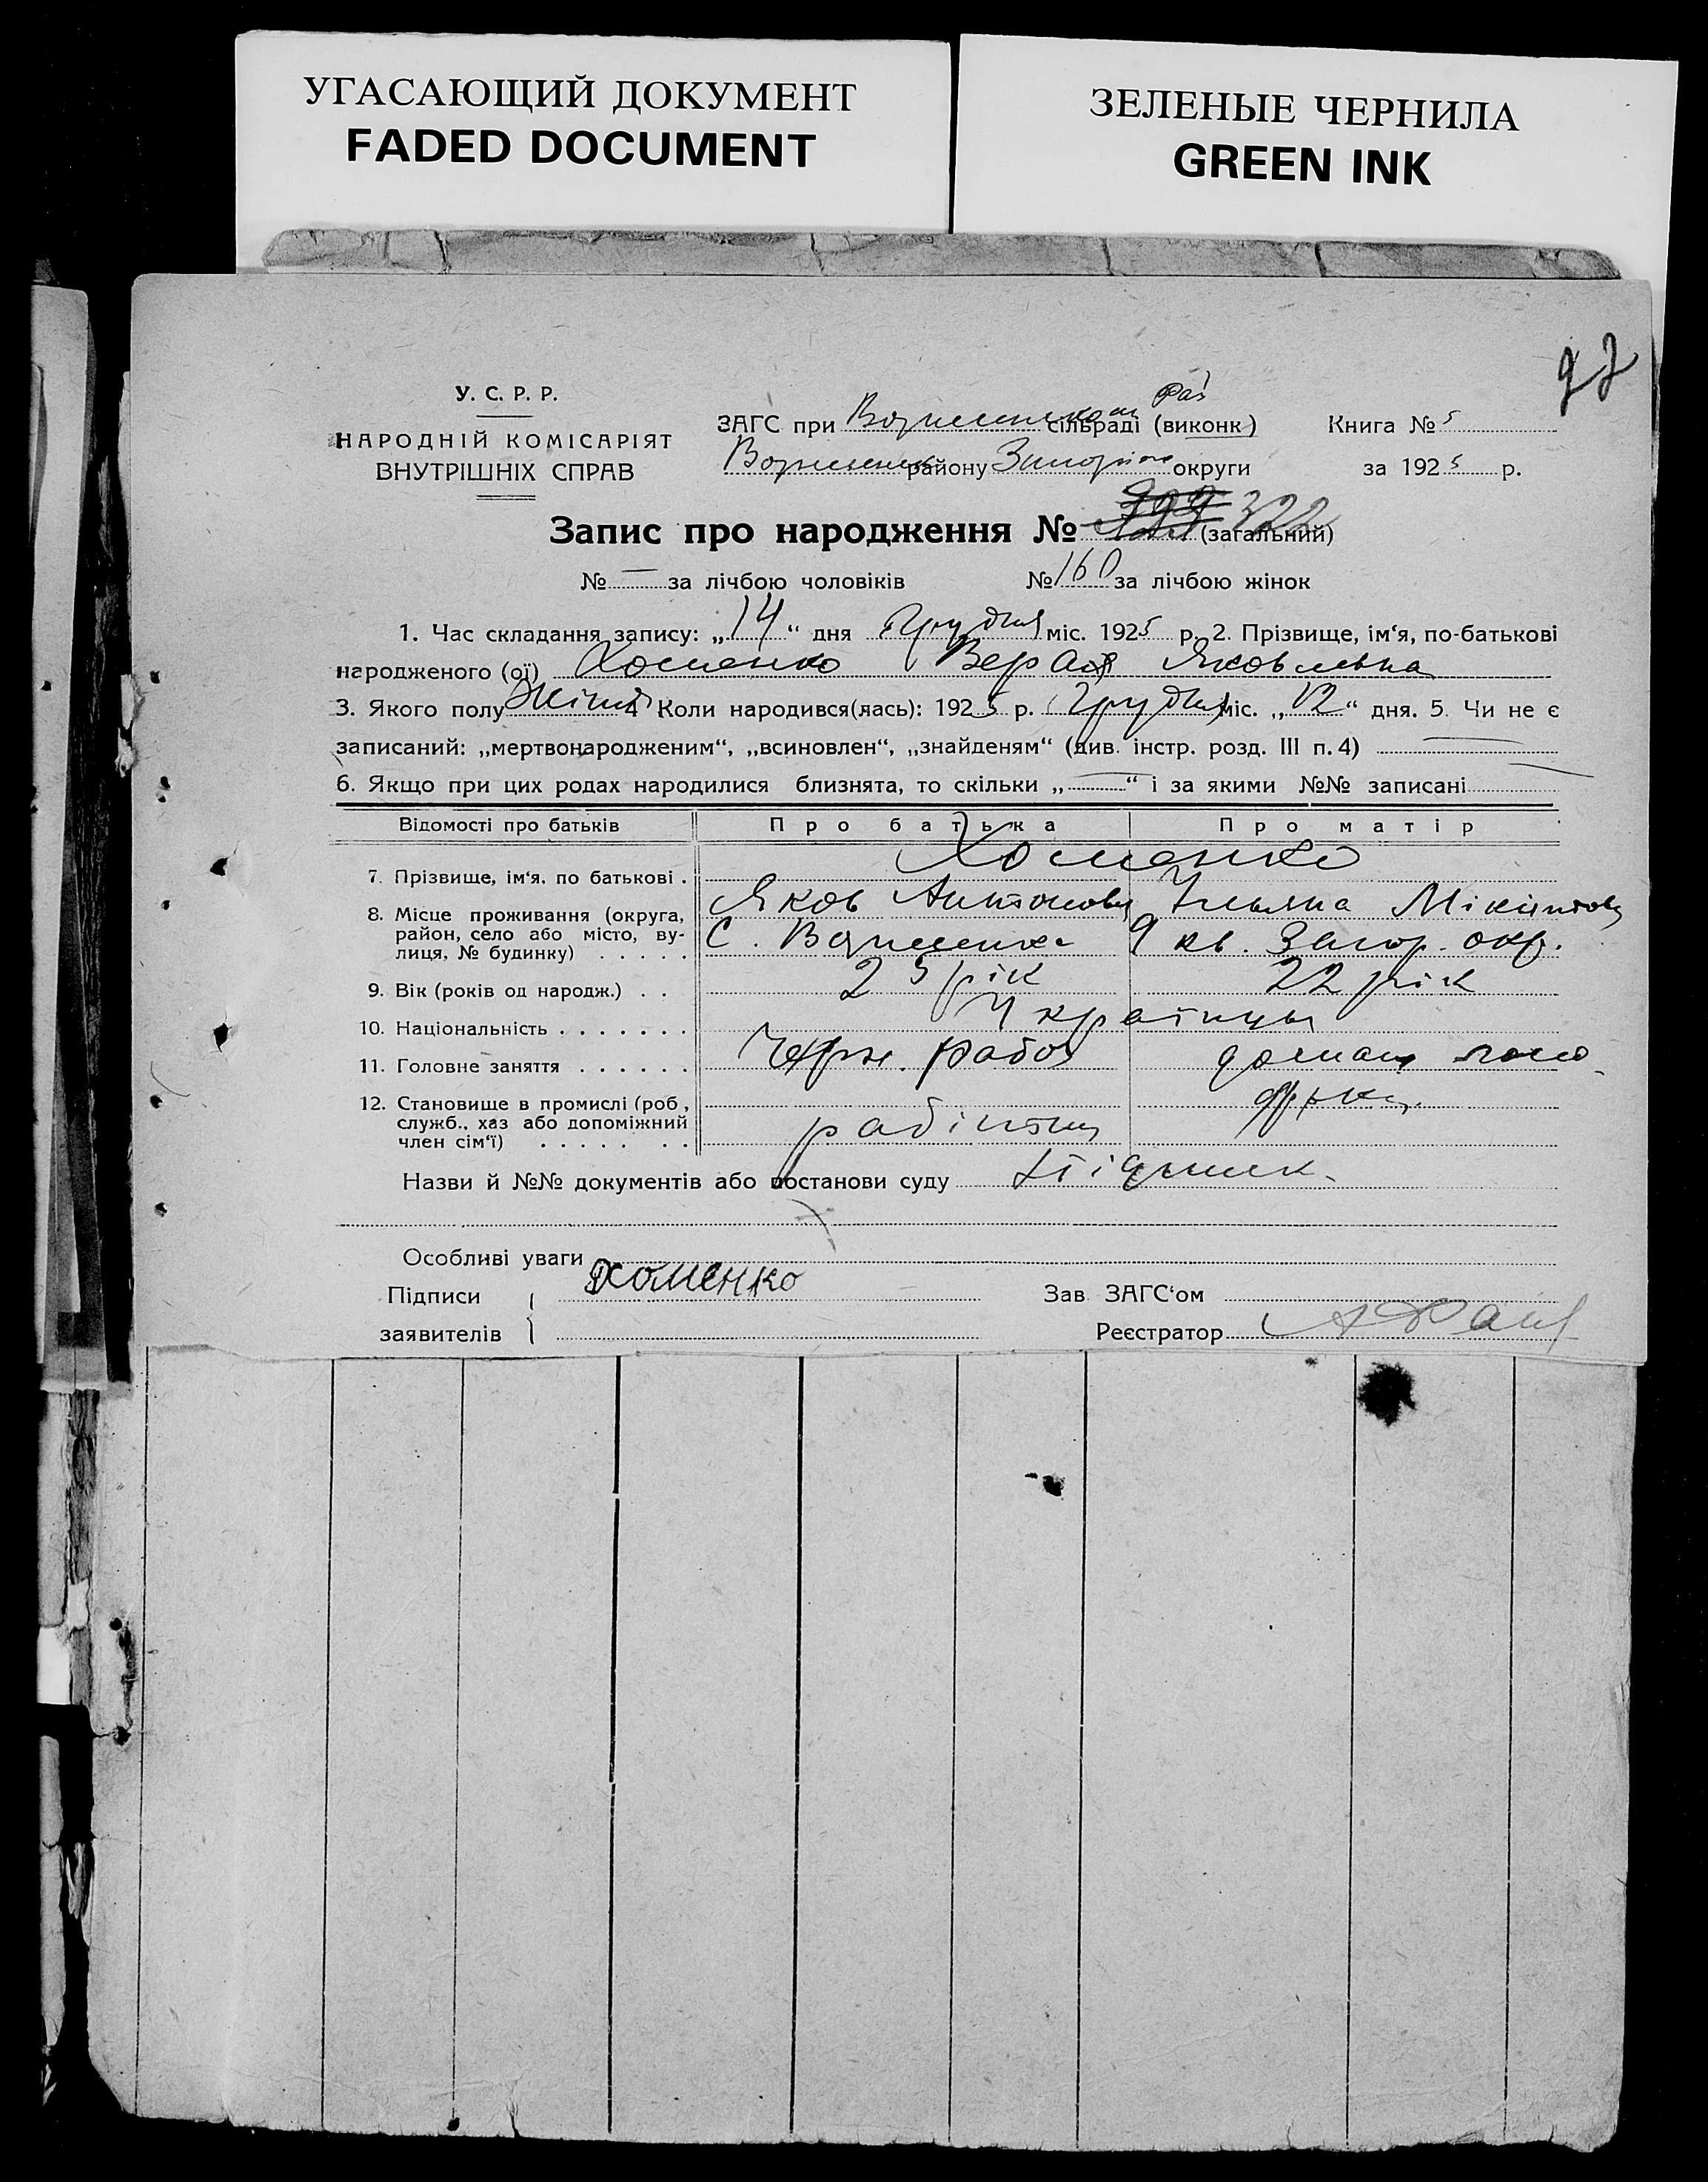 УГАСАЮЩИЙ ДОКУМЕНТ
FADED DOCUMENT
ЗЕЛЕНЫЕ ЧЕРНИЛА
GREEN INK
У. С. Р. Р.
НАРОДНІЙ КОМІСАРІЯТ
ВНУТРІШНІХ СПРАВ
ЗАГС при сільраді (виконк)
району округи
Книга № 5
за 1925 р.
Запис про народження № 322 (загальний)
№ — за лічбою чоловіків № 160 за лічбою жінок
1. Час складання запису: „14“ дня Грудня міс. 1925 р. 2. Прізвище, ім‘я, по-батькові
народженого (ої) Хоменко Вера Яковлевна
3. Якого полу 4 Коли народився(лась): 1925 р. Грудня міс. „12“ дня. 5. Чи не є
записаний: „мертвонародженим“, „всиновлен“, „знайденям“ (див. інстр. розд. III п. 4) —
6. Якщо при цих родах народилися близнята, то скільки „—“ і за якими №№ записані —
Відомості про батьків Про батька Про матір
7. Прізвище, ім‘я. по батькові . Хоменко
Яков Антонович
8. Місце проживання (округа,
район, село або місто, ву-
лиця, № будинку) . . . . .
С. 9 кв. Запор. окр.
9. Вік (років од народж.) . . 25 рік 22 рік
10. Національність . . . . . . . Українцы
11. Головне заняття . . . . . . Черн. рабоч
12. Становище в промислі (роб,
служб., хаз або допоміжний
член сім‘ї) . . . . . . .
робітник
Назви й №№ документів або постанови суду
Особливі уваги
Підписи Хоменко
заявителів
Зав ЗАГС‘ом
Реєстратор